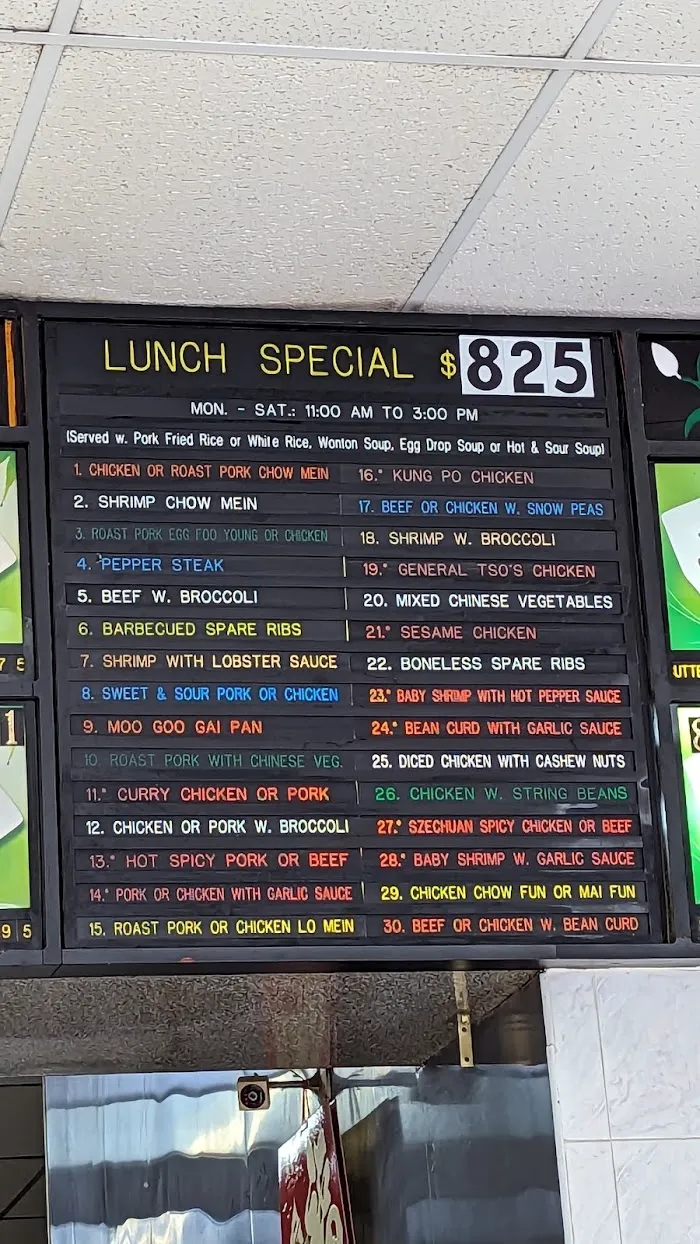 LUNCH SPECIAL $825
MON. - SAT.: 11:00 AM TO 3:00 PM
(Served w. Pork Fried Rice or White Rice, Wonton Soup, Egg Drop Soup or Hot & Sour Soup)
1. CHICKEN OR ROAST PORK CHOW MEIN
2. SHRIMP CHOW MEIN
3. ROAST PORK EGG FOO YOUNG OR CHICKEN
4. PEPPER STEAK
5. BEEF W. BROCCOLI
6. BARBECUED SPARE RIBS
7. SHRIMP WITH LOBSTER SAUCE
8. SWEET & SOUR PORK OR CHICKEN
9. MOO GOO GAI PAN
10. ROAST PORK WITH CHINESE VEG.
11.* CURRY CHICKEN OR PORK
12. CHICKEN OR PORK W. BROCCOLI
13.* HOT SPICY PORK OR BEEF
14.* PORK OR CHICKEN WITH GARLIC SAUCE
15. ROAST PORK OR CHICKEN LO MEIN
16.* KUNG PO CHICKEN
17. BEEF OR CHICKEN W. SNOW PEAS
18. SHRIMP W. BROCCOLI
19.* GENERAL TSO'S CHICKEN
20. MIXED CHINESE VEGETABLES
21.* SESAME CHICKEN
22. BONELESS SPARE RIBS
23.* BABY SHRIMP WITH HOT PEPPER SAUCE
24.* BEAN CURD WITH GARLIC SAUCE
25. DICED CHICKEN WITH CASHEW NUTS
26. CHICKEN W. STRING BEANS
27.* SZECHUAN SPICY CHICKEN OR BEEF
28.* BABY SHRIMP W. GARLIC SAUCE
29. CHICKEN CHOW FUN OR MAI FUN
30. BEEF OR CHICKEN W. BEAN CURD
7 5
1
9 5
UTTE